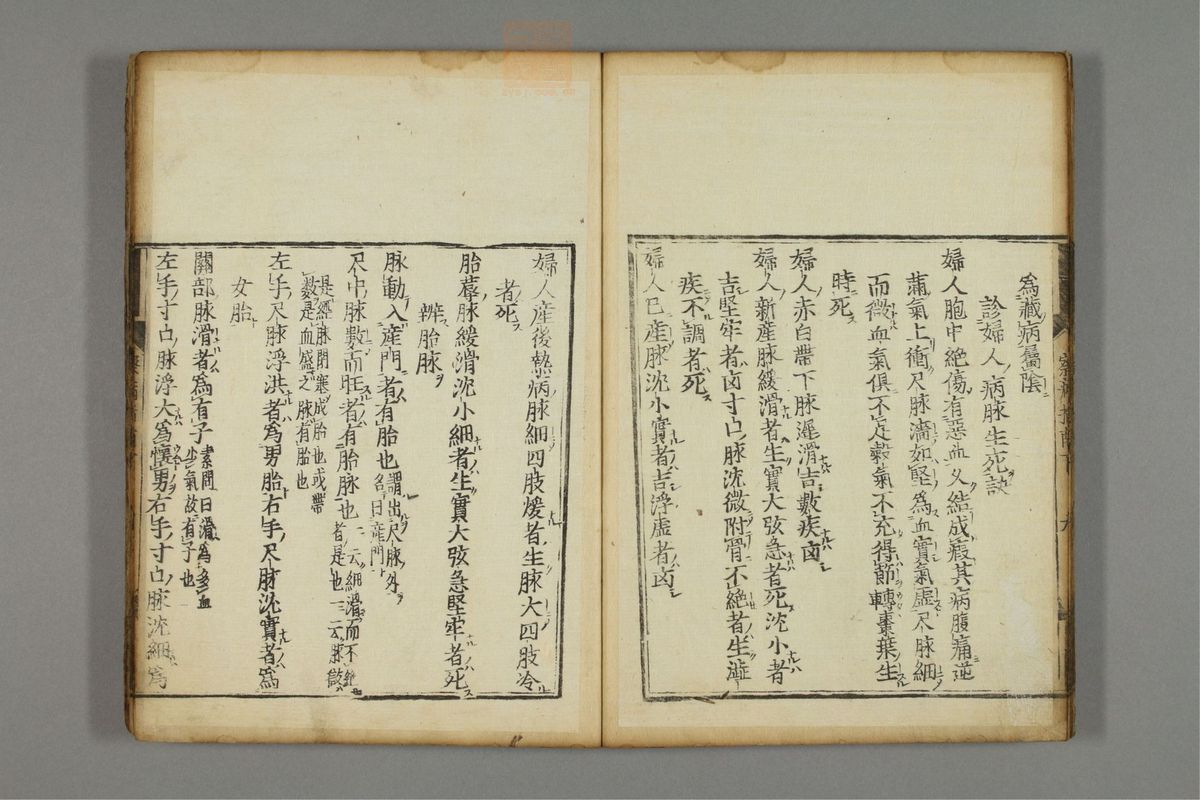 為藏病屬陰
診婦人病脉生死訣
婦人胞中絶傷有惡血久結成瘕其病腹痛逆
滿氣上衝尺脉濇如堅為血實氣虛尺脉細
而微血氣俱不足穀氣不充得節轉棗葉生
時死
婦人赤白帶下脉遲滑吉數疾凶
婦人新産脉緩滑者生實大弦急者死沈小者
吉堅牢者凶寸口脉沈微附骨不絶者生澁
疾不調者死
婦人已産脉沈小實者吉浮虛者凶
婦人産後熱病脉細四肢煖者生脉大四肢冷
者死
胎蓐脉緩滑沈小細者生實大弦急堅牢者死
辨胎脉
脉動入産門者有胎也謂出尺脉外名曰産門
尺中脉數而旺者有胎脉也一云細滑而不絶者是也三云脉微
是經脉閉塞成胎也或帶數是血盛之脉有胎也
左手尺脉浮洪者為男胎右手尺脉沈實者為
女胎
關部脉滑者為有子素問曰滑為多血少氣故有子也
左手寸口脉浮大為懷男右手寸口脉沈細為